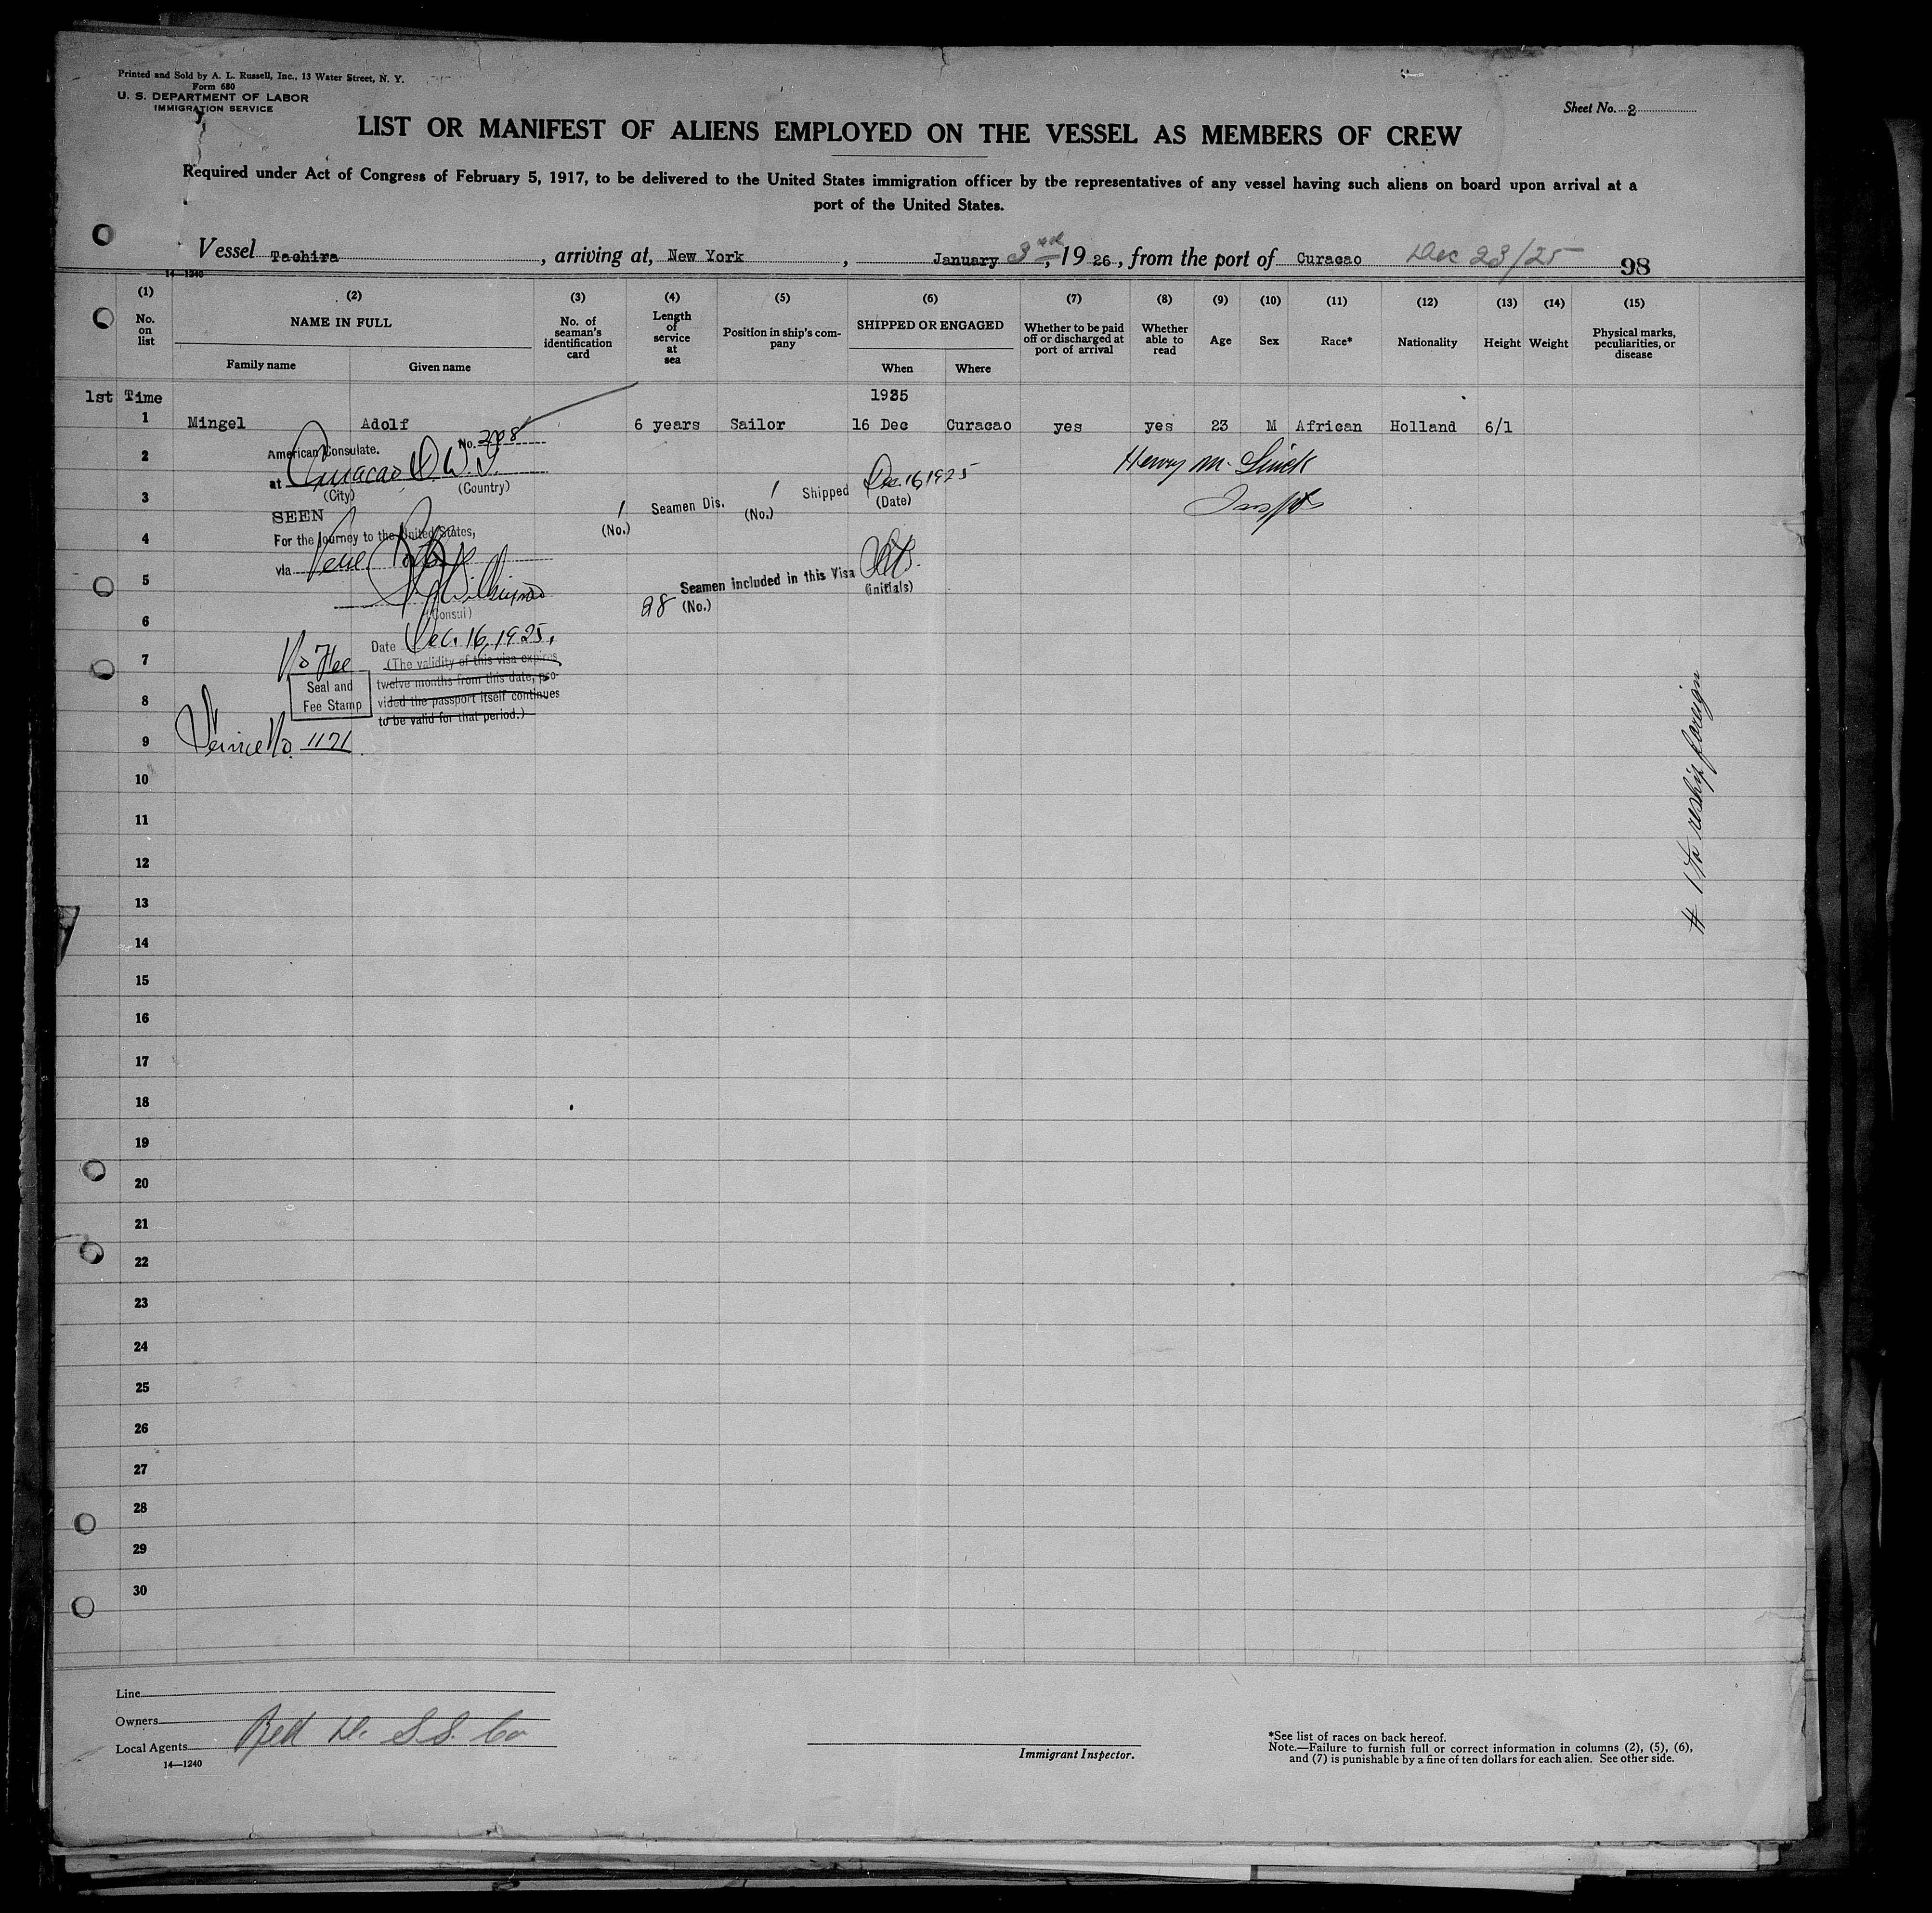 Printed and Sold by A. L. Russell, Inc., 13 Water Street, N. Y.
Form 680
U. S. DEPARTMENT OF LABOR
IMMIGRATION SERVICE
Sheet No. 2
LIST OR MANIFEST OF ALIENS EMPLOYED ON THE VESSEL AS MEMBERS OF CREW
Required under Act of Congress of February 5, 1917, to be delivered to the United States immigration officer by the representatives of any vessel having such aliens on board upon arrival at a
port of the United States.
Vessel Tachira, arriving at, New York, January 3rd, 1926, from the port of Curacao Dec 23/25
98
14—1240
(1) (2) (3) (4) (5) (6) (7) (8) (9) (10) (11) (12) (13) (14) (15)
No. on list
NAME IN FULL
Family name
Given name
No. of seaman's identification card
Length of service at sea
Position in ship's company
SHIPPED OR ENGAGED
When
Where
Whether to be paid off or discharged at port of arrival
Whether able to read
Age
Sex
Race*
Nationality
Height
Weight
Physical marks, peculiarities, or disease
1st Time 1925
1 Mingel Adolf 6 years Sailor 16 Dec Curacao yes yes 23 M African Holland 6/1
No. 208
American Consulate.
at Curacao, D.W.I.
(City) (Country)
Henry M.
SEEN
1 Seamen Dis. 1 Shipped Dec. 16, 1925
(No.) (No.) (Date)
For the journey to the United States,
via
(Consul)
28 Seamen included in this Visa
(No.) (initials)
Date Dec. 16, 1925.
No Fee
(The validity of this visa expires
twelve months from this date, pro-
vided the passport itself continues
to be valid for that period.)
Seal and
Fee Stamp
Service No. 1121.
2
3
4
5
6
7
8
9
10
11
12
13
14
15
16
17
18
19
20
21
22
23
24
25
26
27
28
29
30
# 1 To reship foreign
Line
Owners
Local Agents Red D. S.S. Co
14—1240
Immigrant Inspector.
*See list of races on back hereof.
Note.—Failure to furnish full or correct information in columns (2), (5), (6),
and (7) is punishable by a fine of ten dollars for each alien. See other side.